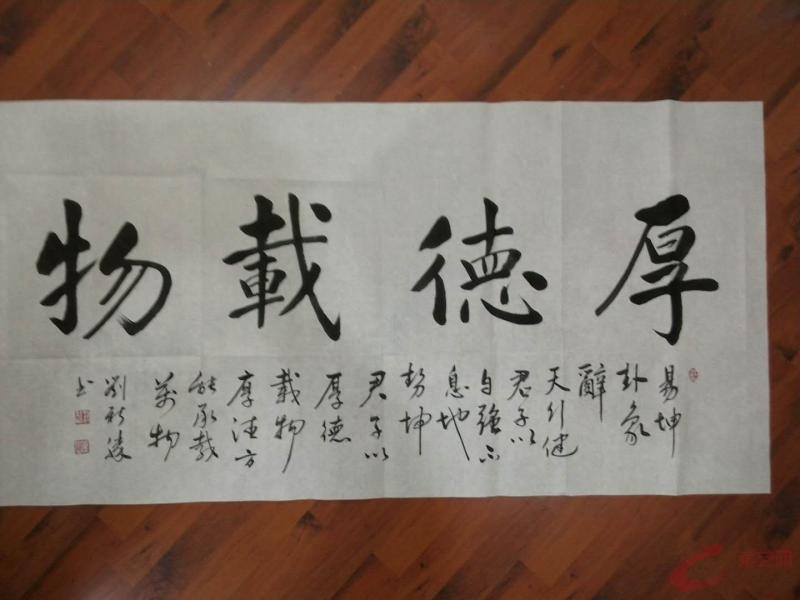 厚德載物
易坤
卦象
辭
天行健
君子以
自强不
息地
势坤
君子以
厚德
载物
厚德方
能承载
萬物
劉新
书